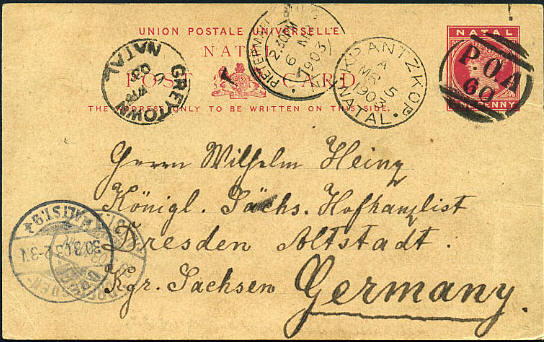 UNION POSTALE UNIVERSELLE
NATAL
POST CARD
THE ADDRESS ONLY TO BE WRITTEN ON THIS SIDE.
NATAL
PENNY
P.O.A
60
KRANTZKOP
A
MR 5
1903
NATAL
2.30PM
6 MR
1903
GREYTOWN
NATAL
Herrn Wilhelm Heinz
Königl. Sächs. Hofkanzlist
Dresden Altstadt.
Kgr. Sachsen Germany.
DRESDEN
ALTST.
30.3.03.2-3N